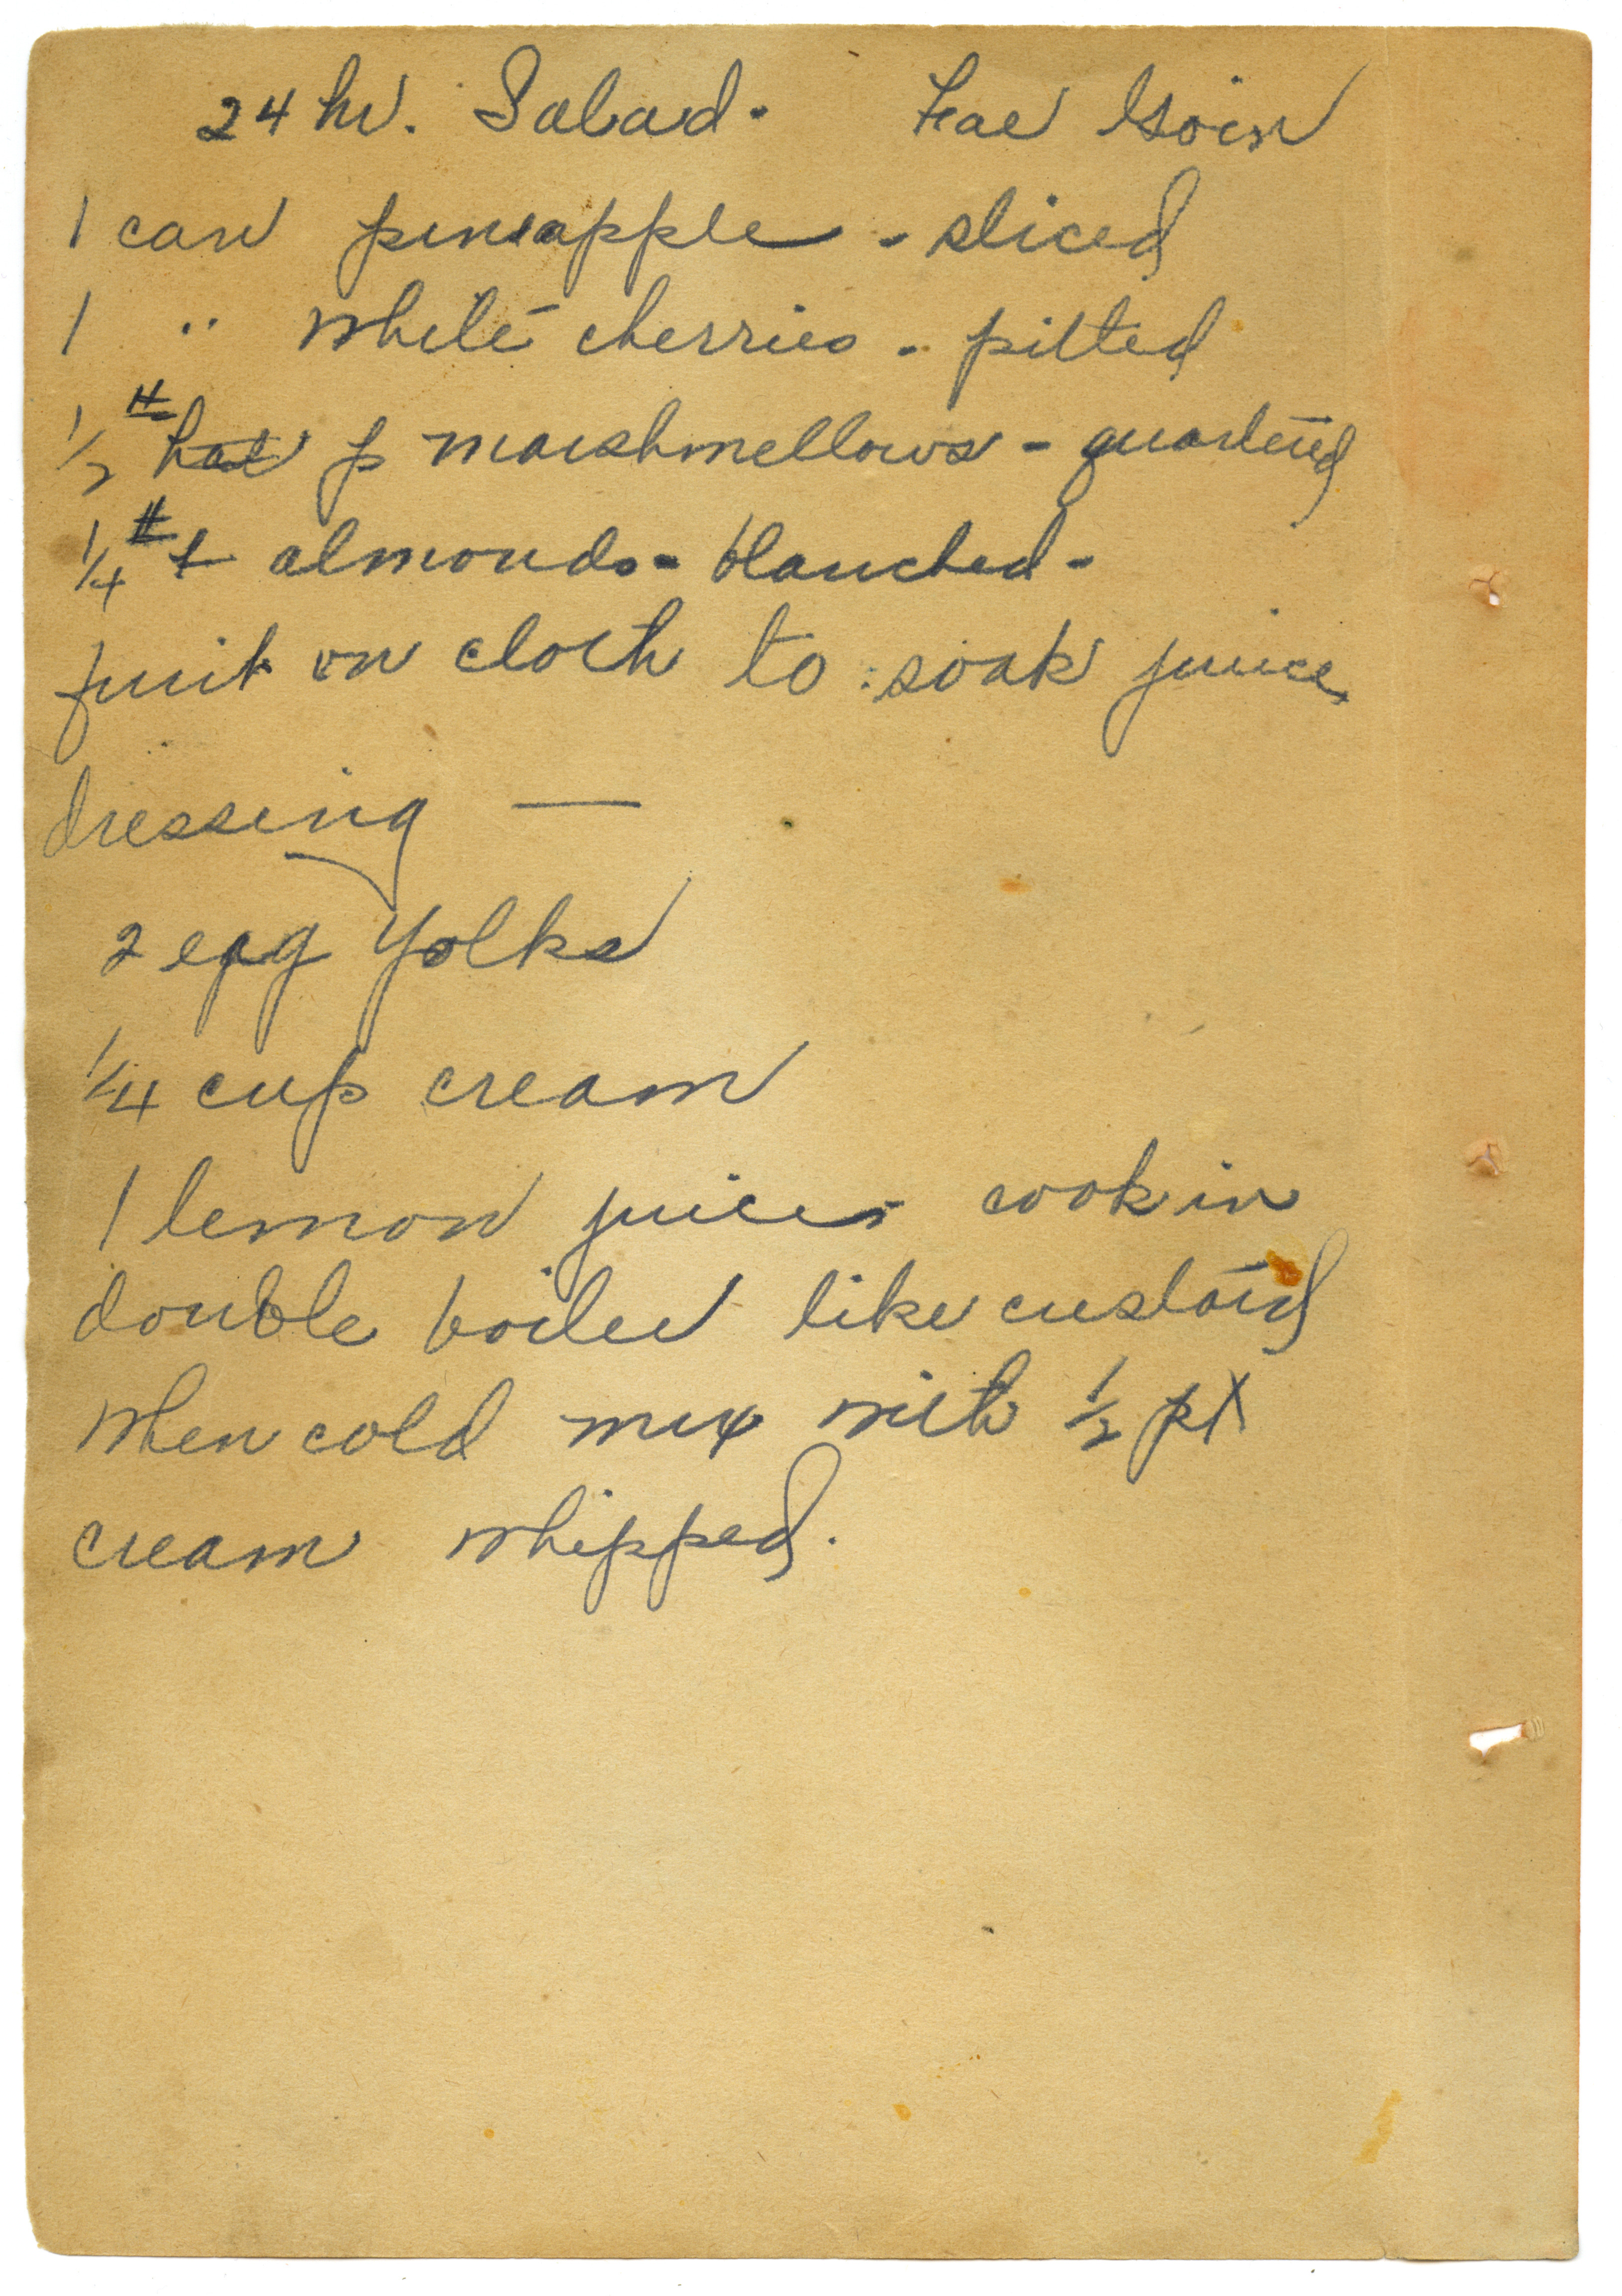 24 hr. Salad. Fae Goin
1 can pineapple - sliced
1 " white cherries - pitted
1/2 # p marshmellows - quartered
1/4 # almonds - blanched -
fruit on cloth to soak juice
dressing —
2 egg yolks
1/4 cup cream
1 lemon juice - cook in
double boiler like custard
when cold mix with 1/2 pt
cream whipped.